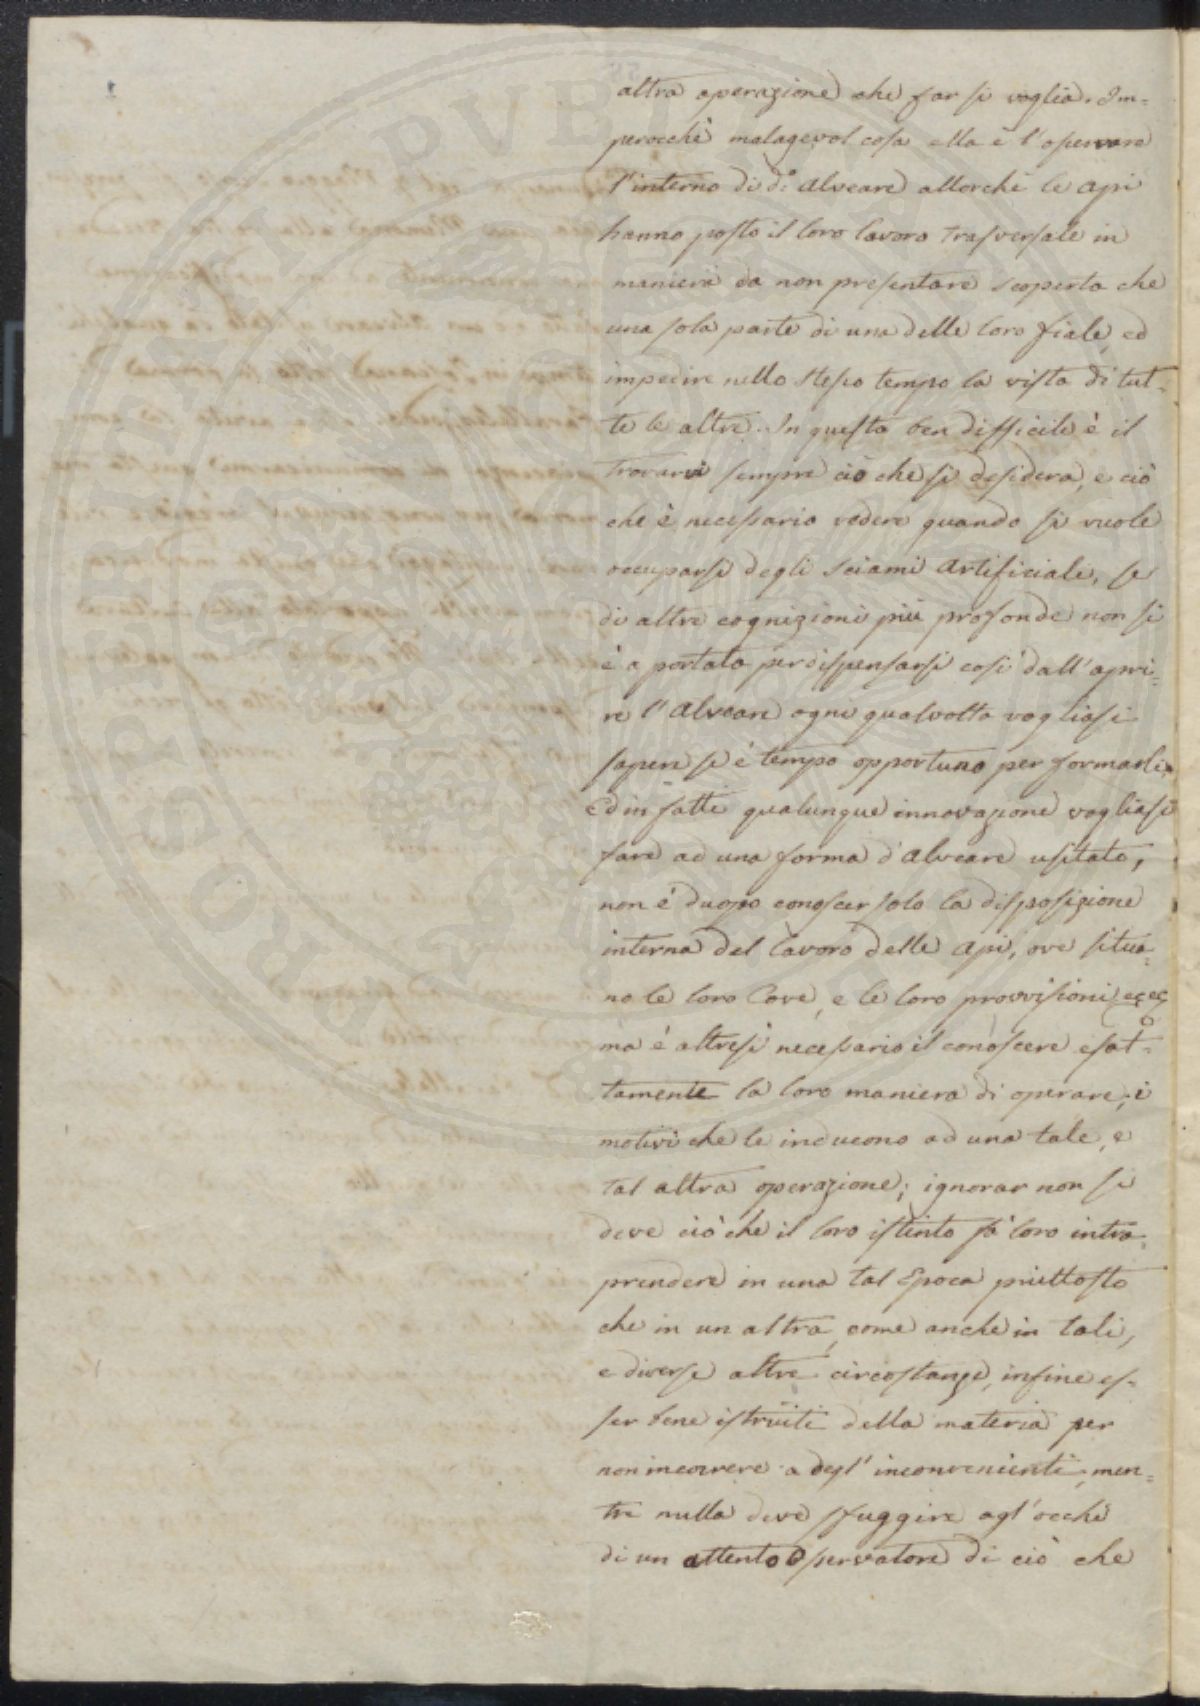 altra operazione che far si voglia. Im=
perocchè malagevol cosa ella è l'osservare
l'interno di d.º Alveare allorchè le Api
hanno posto il loro lavoro trasversale in
maniera da non presentare scoperta che
una sola parte di una delle loro fiale, ed
impedire nello stesso tempo la vista di tut=
te le altre. In questo ben difficile è il
trovarvi sempre ciò che si desidera, e ciò
che è necessario vedere quando si vuole
occuparsi degli Sciami Artificiali, se
di altre cognizioni più profonde non si
è a portata per dispensarsi così dall'apri=
re l'Alveare ogni qualvolta vogliasi
sapere se è tempo opportuno per formarli.
Ed in fatti qualunque innovazione vogliasi
fare ad una forma d'Alveare usitato,
non è duopo conoscer solo la disposizione
interna del lavoro delle Api, ove situa=
no le loro Cove, e le loro provvisioni ec ec
ma è altresì necessario il conoscere esat=
tamente la loro maniera di operare, i
motivi che le inducono ad una tale, e
tal altra operazione; ignorar non si
deve ciò che il loro istinto fà loro intra=
prendere in una tal Epoca piuttosto
che in un altra, come anche in tali,
e diverse altre circostanze, infine es=
ser bene istruiti della materia per
non incorrere a degl' inconvenienti, men=
tre nulla deve sfuggire agl'occhi
di un attento Osservatore di ciò che